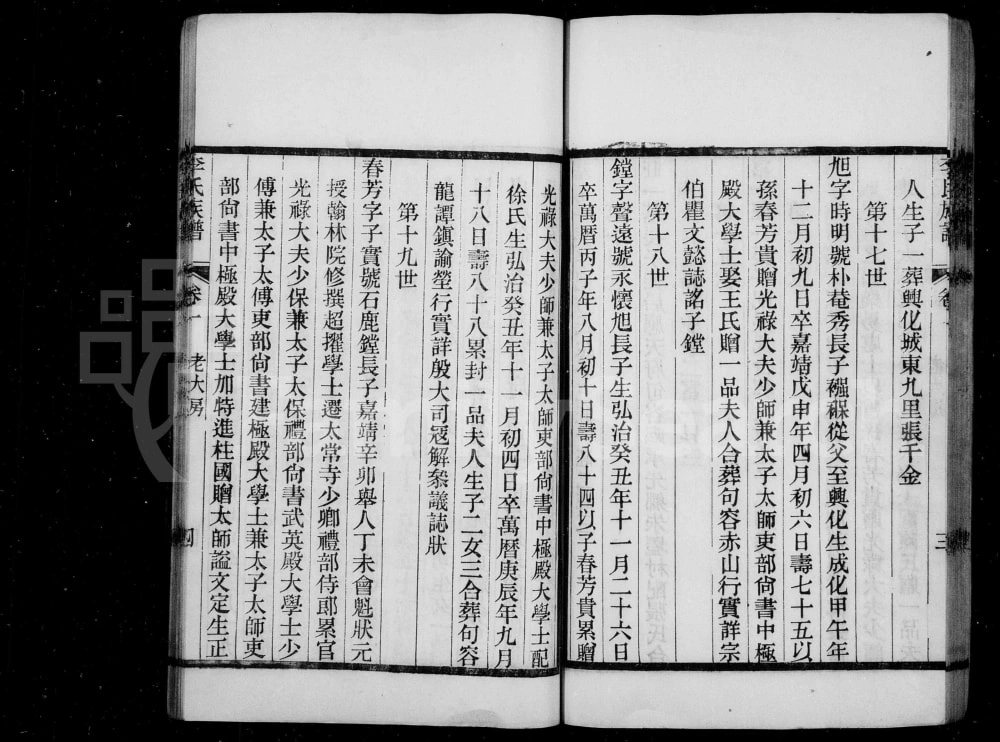 李氏族譜
卷一
三
人生子一葬興化城東九里張千金
第十七世
旭字時明號朴菴秀長子襁褓從父至興化生成化甲午年
十二月初九日卒嘉靖戊申年四月初六日壽七十五以
孫春芳貴贈光祿大夫少師兼太子太師吏部尚書中極
殿大學士娶王氏贈一品夫人合葬句容赤山行實詳宗
伯瞿文懿誌銘子鏜
第十八世
鏜字聲遠號永懷旭長子生弘治癸丑年十一月二十六日
卒萬曆丙子年八月初十日壽八十四以子春芳貴累贈
光祿大夫少師兼太子太師吏部尚書中極殿大學士配
徐氏生弘治癸丑年十一月初四日卒萬曆庚辰年九月
十八日壽八十八累封一品夫人生子二女三合葬句容
龍潭鎮諭塋行實詳殷大司冠解叅議誌狀
第十九世
春芳字子實號石鹿鏜長子嘉靖辛卯舉人丁未會魁狀元
授翰林院修撰超擢學士遷太常寺少卿禮部侍郎累官
光祿大夫少保兼太子太保禮部尚書武英殿大學士少
傅兼太子太傅吏部尚書建極殿大學士兼太子太師吏
部尚書中極殿大學士加特進柱國贈太師謚文定生正
李氏族譜
卷一
老大房
四